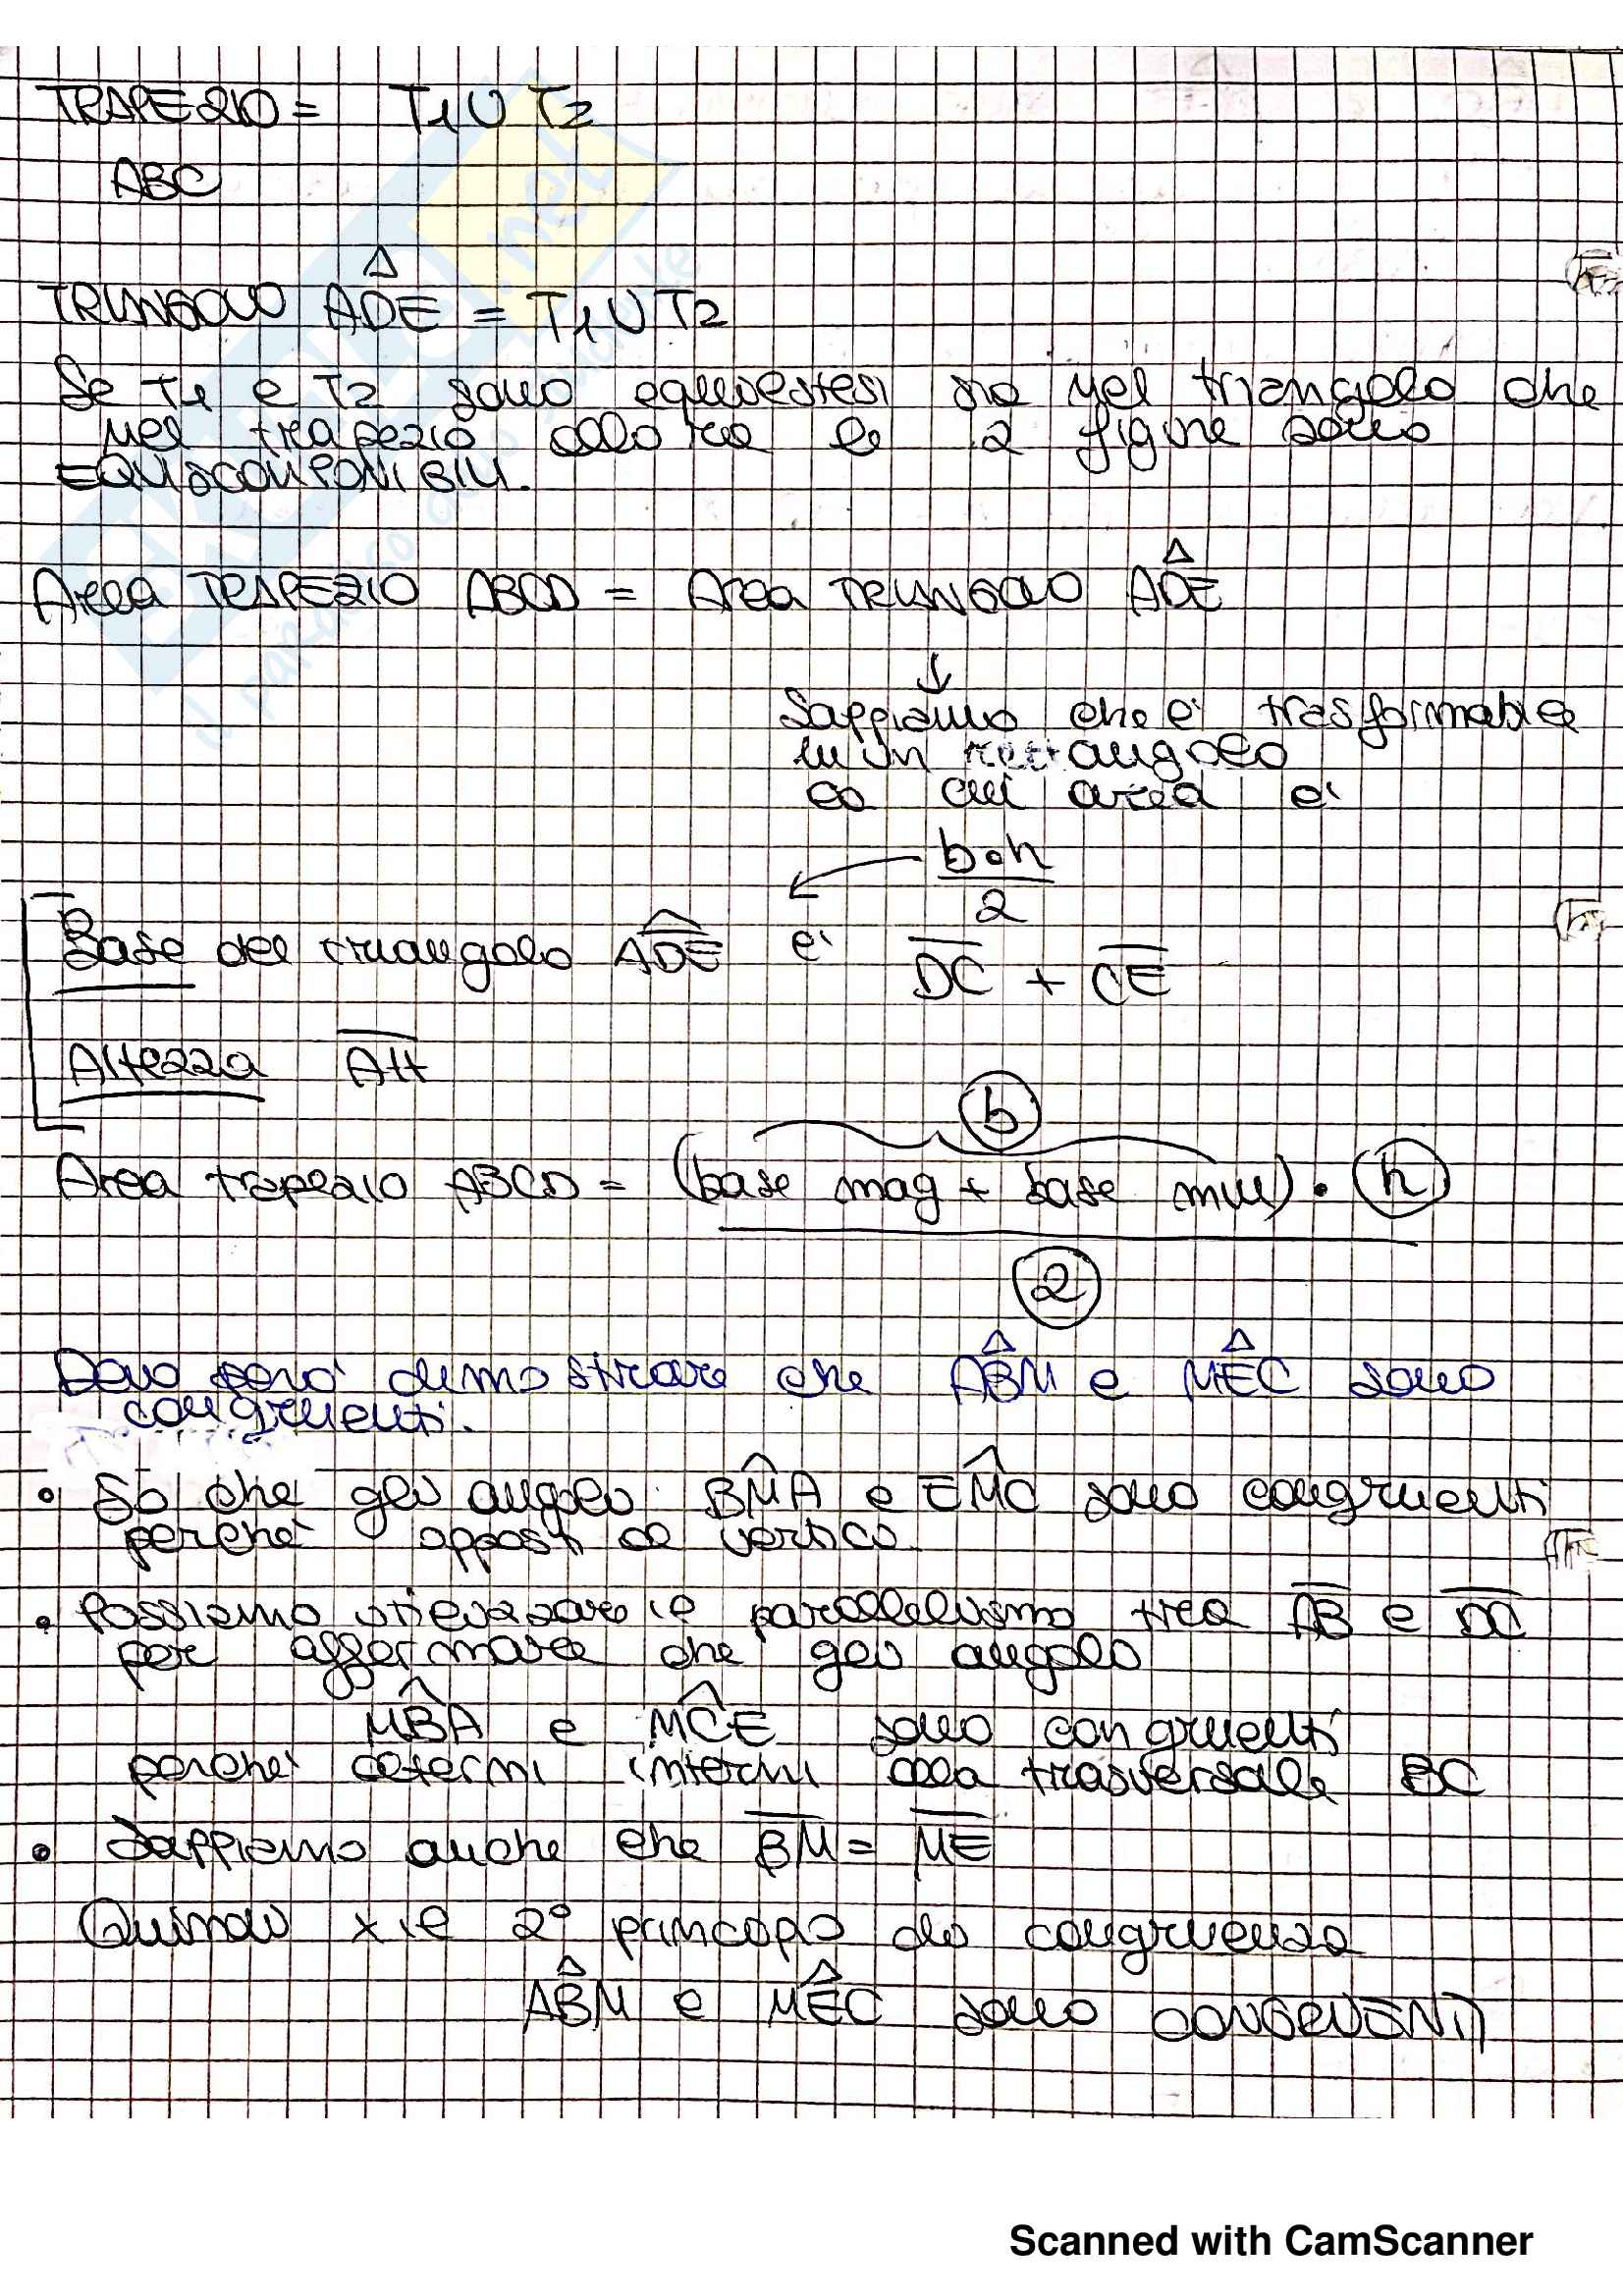 TRAPEZIO = T1 U T2
ABC
TRIANGOLO ADE = T1 U T2
Se T1 e T2 sono equiestesi sia nel triangolo che
nel trapezio allora le 2 figure sono
EQUISCOMPONIBILI.
Area TRAPEZIO ABCD = Area TRIANGOLO ADE
↓
Sappiamo che è trasformabile
in un rettangolo
la cui area è
b·h
2
Base del triangolo ADE è DC + CE
Altezza AH
b
Area trapezio ABCD = (base mag + base min) · h
2
Devo però dimostrare che ABM e MEC sono
congruenti.
• So che gli angoli BM̂A e EM̂C sono congruenti
perché opposti al vertice.
• Possiamo utilizzare il parallelismo tra AB e DC
per affermare che gli angoli
MB̂A e MĈE sono congruenti
perché alterni interni alla trasversale BC
• Sappiamo anche che BM = ME
Quindi x il 2° principio di congruenza
ABM e MEC sono CONGRUENTI
il paradiso dello studente
Scanned with CamScanner